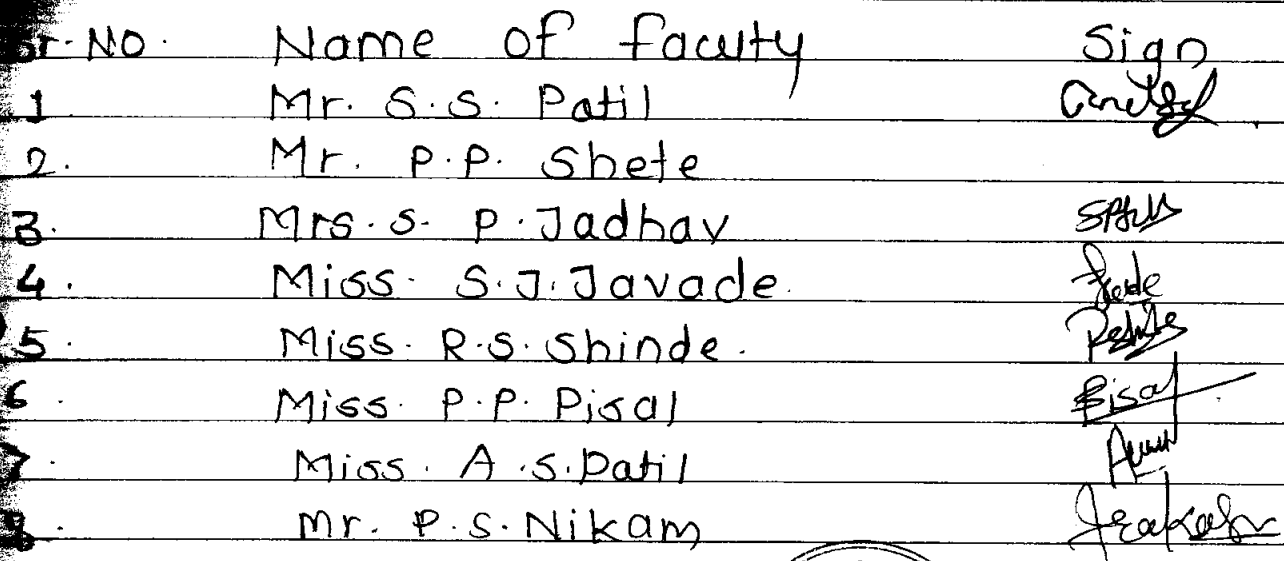 Sr. No. Name of facutty Sign
1 Mr. S.S. Patil
2. Mr. P.P. Shete
3. Mrs. S. P. Jadhav
4. Miss. S.J. Javade.
5. Miss. R.S. Shinde.
6. Miss. P.P. Pisal Pisal
7. Miss. A.S. Patil
8. Mr. P.S. Nikam